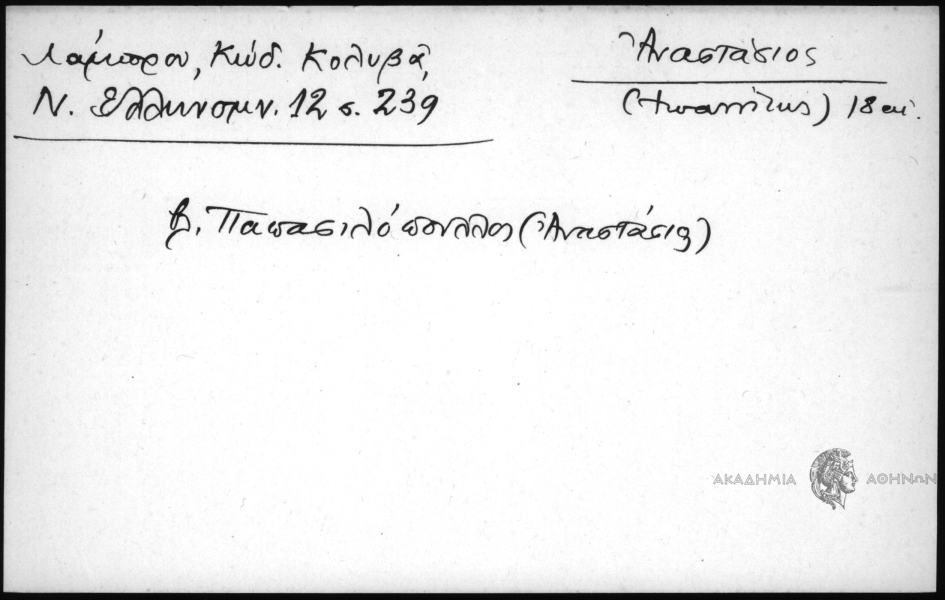 Λάμπρου, Κώδ. Κολυβᾶ,
Ν. Ἑλληνομν. 12 σ. 239
Ἀναστάσιος
(Ἰωαννίτης) 18 αἰ.
β. Παπασιλόπουλλος (Ἀναστάσιος)
ΑΚΑΔΗΜΙΑ ΑΘΗΝΩΝ